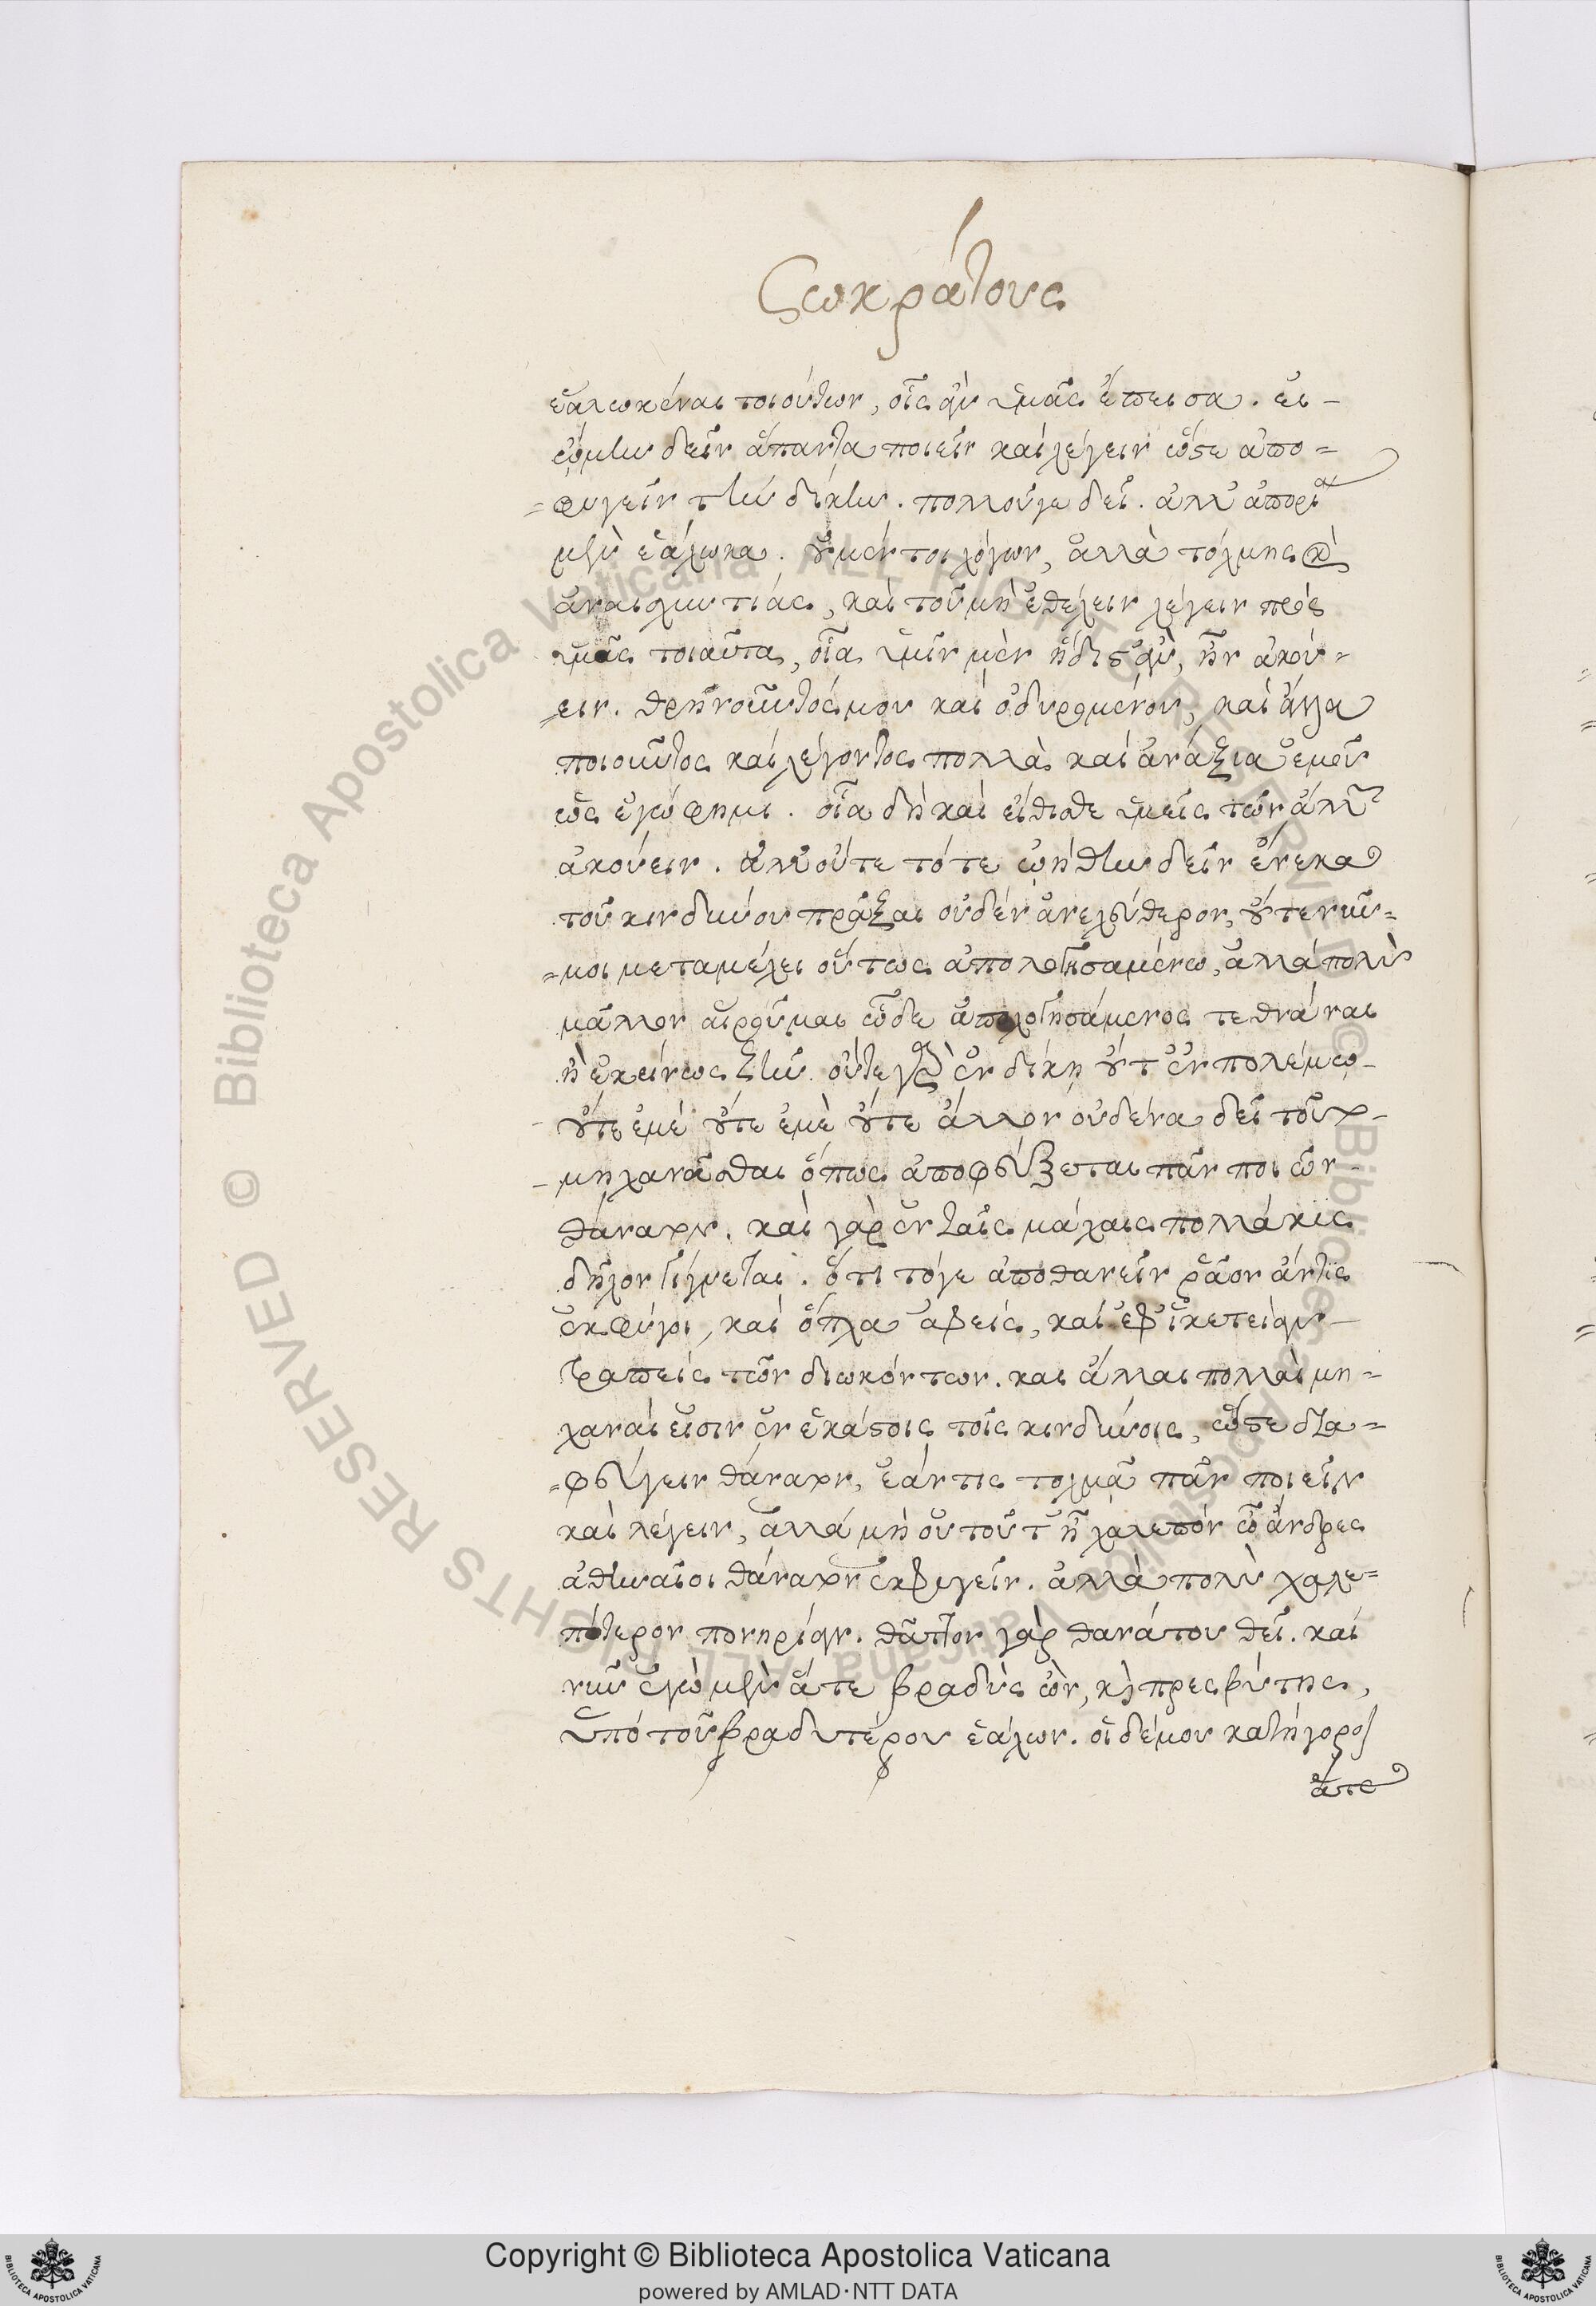 Σωκράτους
ἑαλωκέναι τοιούτων, οἷς ἂν ὑμᾶς ἔπεισα. εἰ
ᾤμην δεῖν ἅπαντα ποιεῖν καὶ λέγειν ὥστε ἀπο=
=φυγεῖν τὴν δίκην. πολλοῦ γε δεῖ. ἀλλ' ἀπορίᾳ
μὲν ἑάλωκα. οὐ μέν τοι λόγων, ἀλλὰ τόλμης καὶ
ἀναισχυντίας, καὶ τοῦ μὴ ἐθέλειν λέγειν πρὸς
ὑμᾶς τοιαῦτα, οἷα ὑμῖν μὲν ἥδιστ' ἂν, ἦν ἀκού=
=ειν. θρηνοῦντός μου καὶ ὀδυρομένου, καὶ ἄλλα
ποιοῦντος καὶ λέγοντος πολλὰ καὶ ἀνάξια ἐμοῦ
ὡς ἐγώ φημι. οἷα δὴ καὶ εἴθισθε ὑμεῖς τῶν ἄλλων
ἀκούειν. ἀλλ' οὔτε τότε ᾠήθην δεῖν ἕνεκα
τοῦ κινδύνου πρᾶξαι οὐδὲν ἀνελεύθερον, οὔτε νῦν=
=μοι μεταμέλει οὕτως ἀπολογησαμένω, ἀλλὰ πολὺ
μᾶλλον αἱροῦμαι ὧδε ἀπολογησάμενος τεθνάναι
ἢ ἐκείνως ζῆν. οὔτε γὰρ ἐν δίκη οὔτ' ἐν πολέμω
οὔτε ἐμὲ οὔτε ἐμὲ οὔτε ἄλλον οὐδένα δεῖ τοῦτο
μηχανᾶσθαι ὅπως ἀποφεύξεται πᾶν ποιῶν
θάνατον. καὶ γὰρ ἐν ταῖς μάχαις πολλάκις
δῆλον γίγνεται. ὅτι τό γε ἀποθανεῖν ῥᾷον ἄν τις
ἐκφύγοι, καὶ ὅπλα ἀφεὶς, καὶ ἐφ' ἱκετείαν
τραπεὶς τῶν διωκόντων. και ἄλλαι πολλαὶ μη=
χαναί εἰσιν ἐν ἑκάστοις τοῖς κινδύνοις, ὥστε δια=
=φεύγειν θάνατον, ἐάν τις τολμᾷ πᾶν ποιεῖν
καὶ λέγειν, ἀλλὰ μὴ οὐ τοῦτ' ᾖ χαλεπὸν ὦ ἄνδρες
ἀθηναῖοι θάνατον ἐκφυγεῖν. ἀλλὰ πολὺ χαλε=
πώτερον πονηρίαν. θᾶττον γὰρ θανάτου θεῖ. καὶ
νῦν ἐγὼ μὲν ἅτε βραδὺς ὢν, καὶ πρεσβύτης,
ὑπὸ τοῦ βραδυτέρου ἑάλων. οἱ δέ μου κατήγοροι
ἅτε
Biblioteca Apostolica Vaticana ALL RIGHTS RESERVED © Biblioteca Apostolica Vaticana ALL RIGHTS RESERVED ©
Copyright © Biblioteca Apostolica Vaticana
powered by AMLAD·NTT DATA
BIBLIOTECA APOSTOLICA VATICANA
BIBLIOTECA APOSTOLICA VATICANA